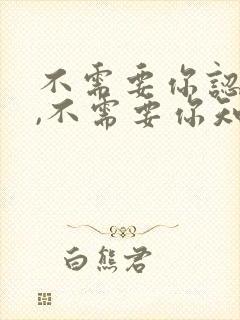 不需要你認
,不需要你知
白熊君